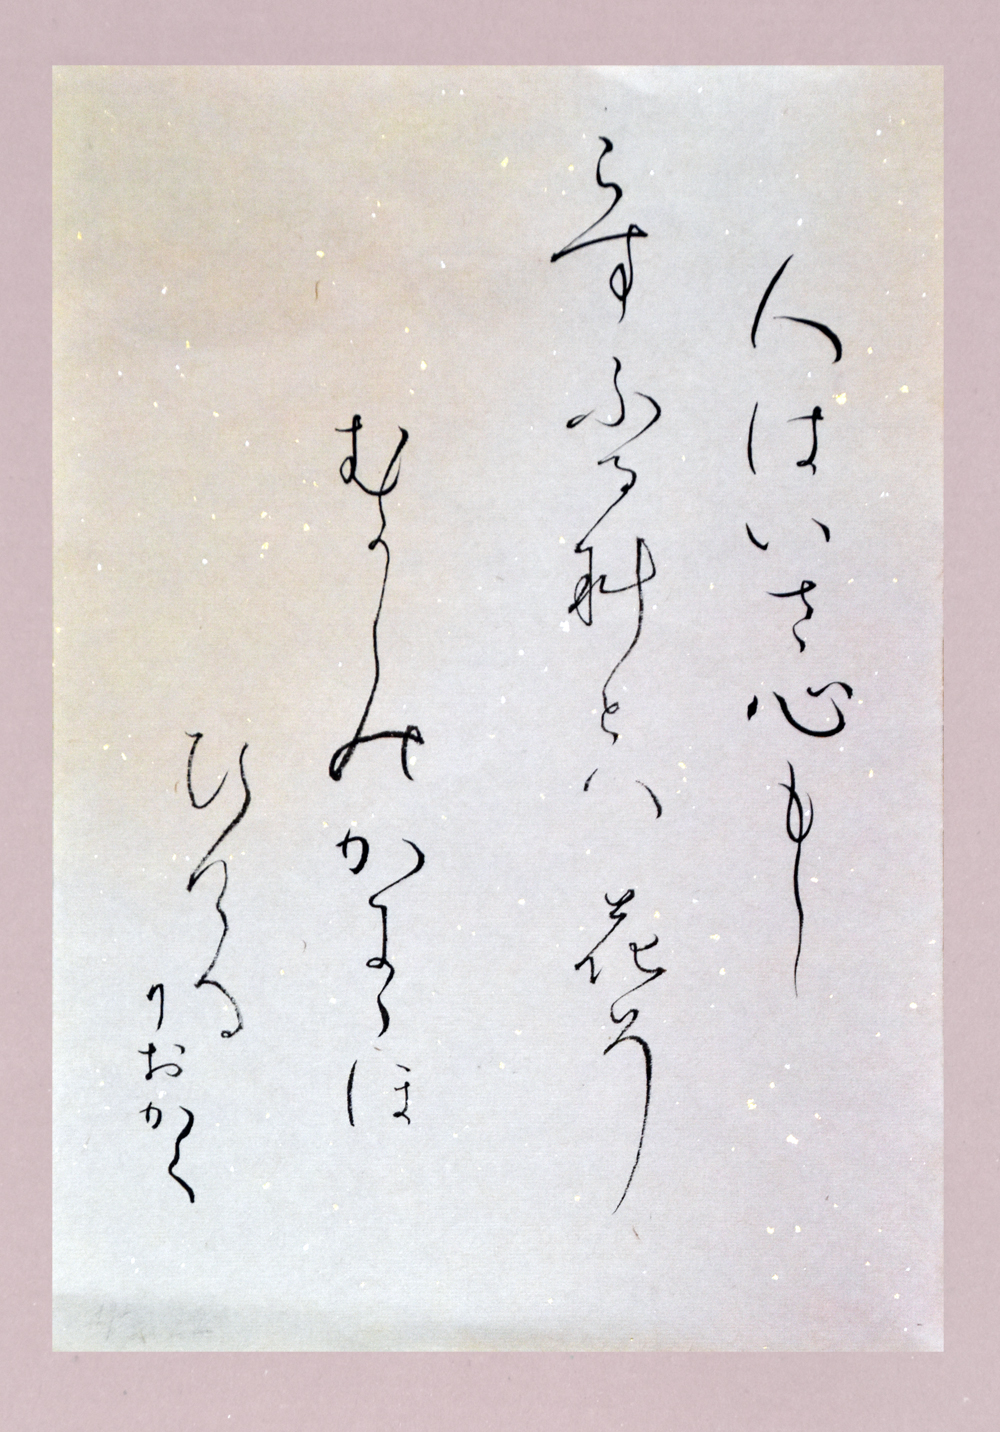 人はいさ心もし
らすふるさとハ 花そ
むかしのかにゝほ
ひける
りおかく